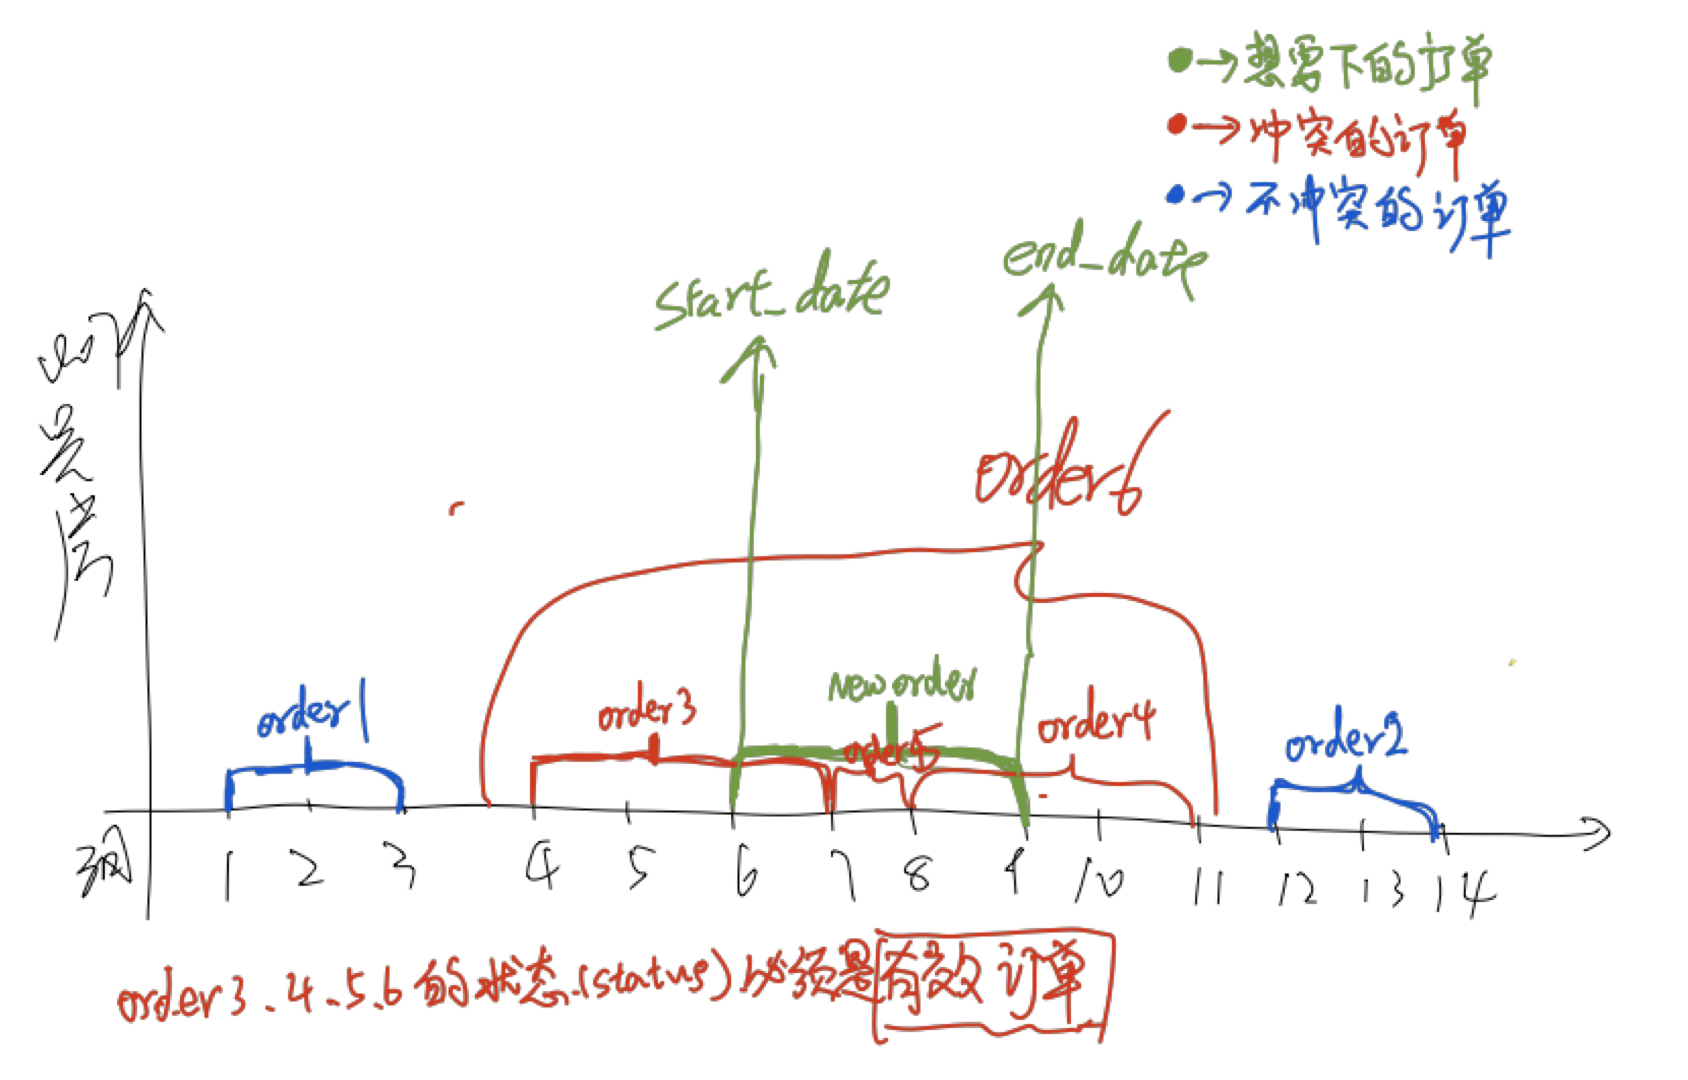 →想要下的订单
→冲突的订单
→不冲突的订单
end_date
start_date
order6
new order
order1
order3
order5
order4
order2
1 2 3 4 5 6 7 8 9 10 11 12 13 14
order3.4.5.6的状态(status)必须是有效订单